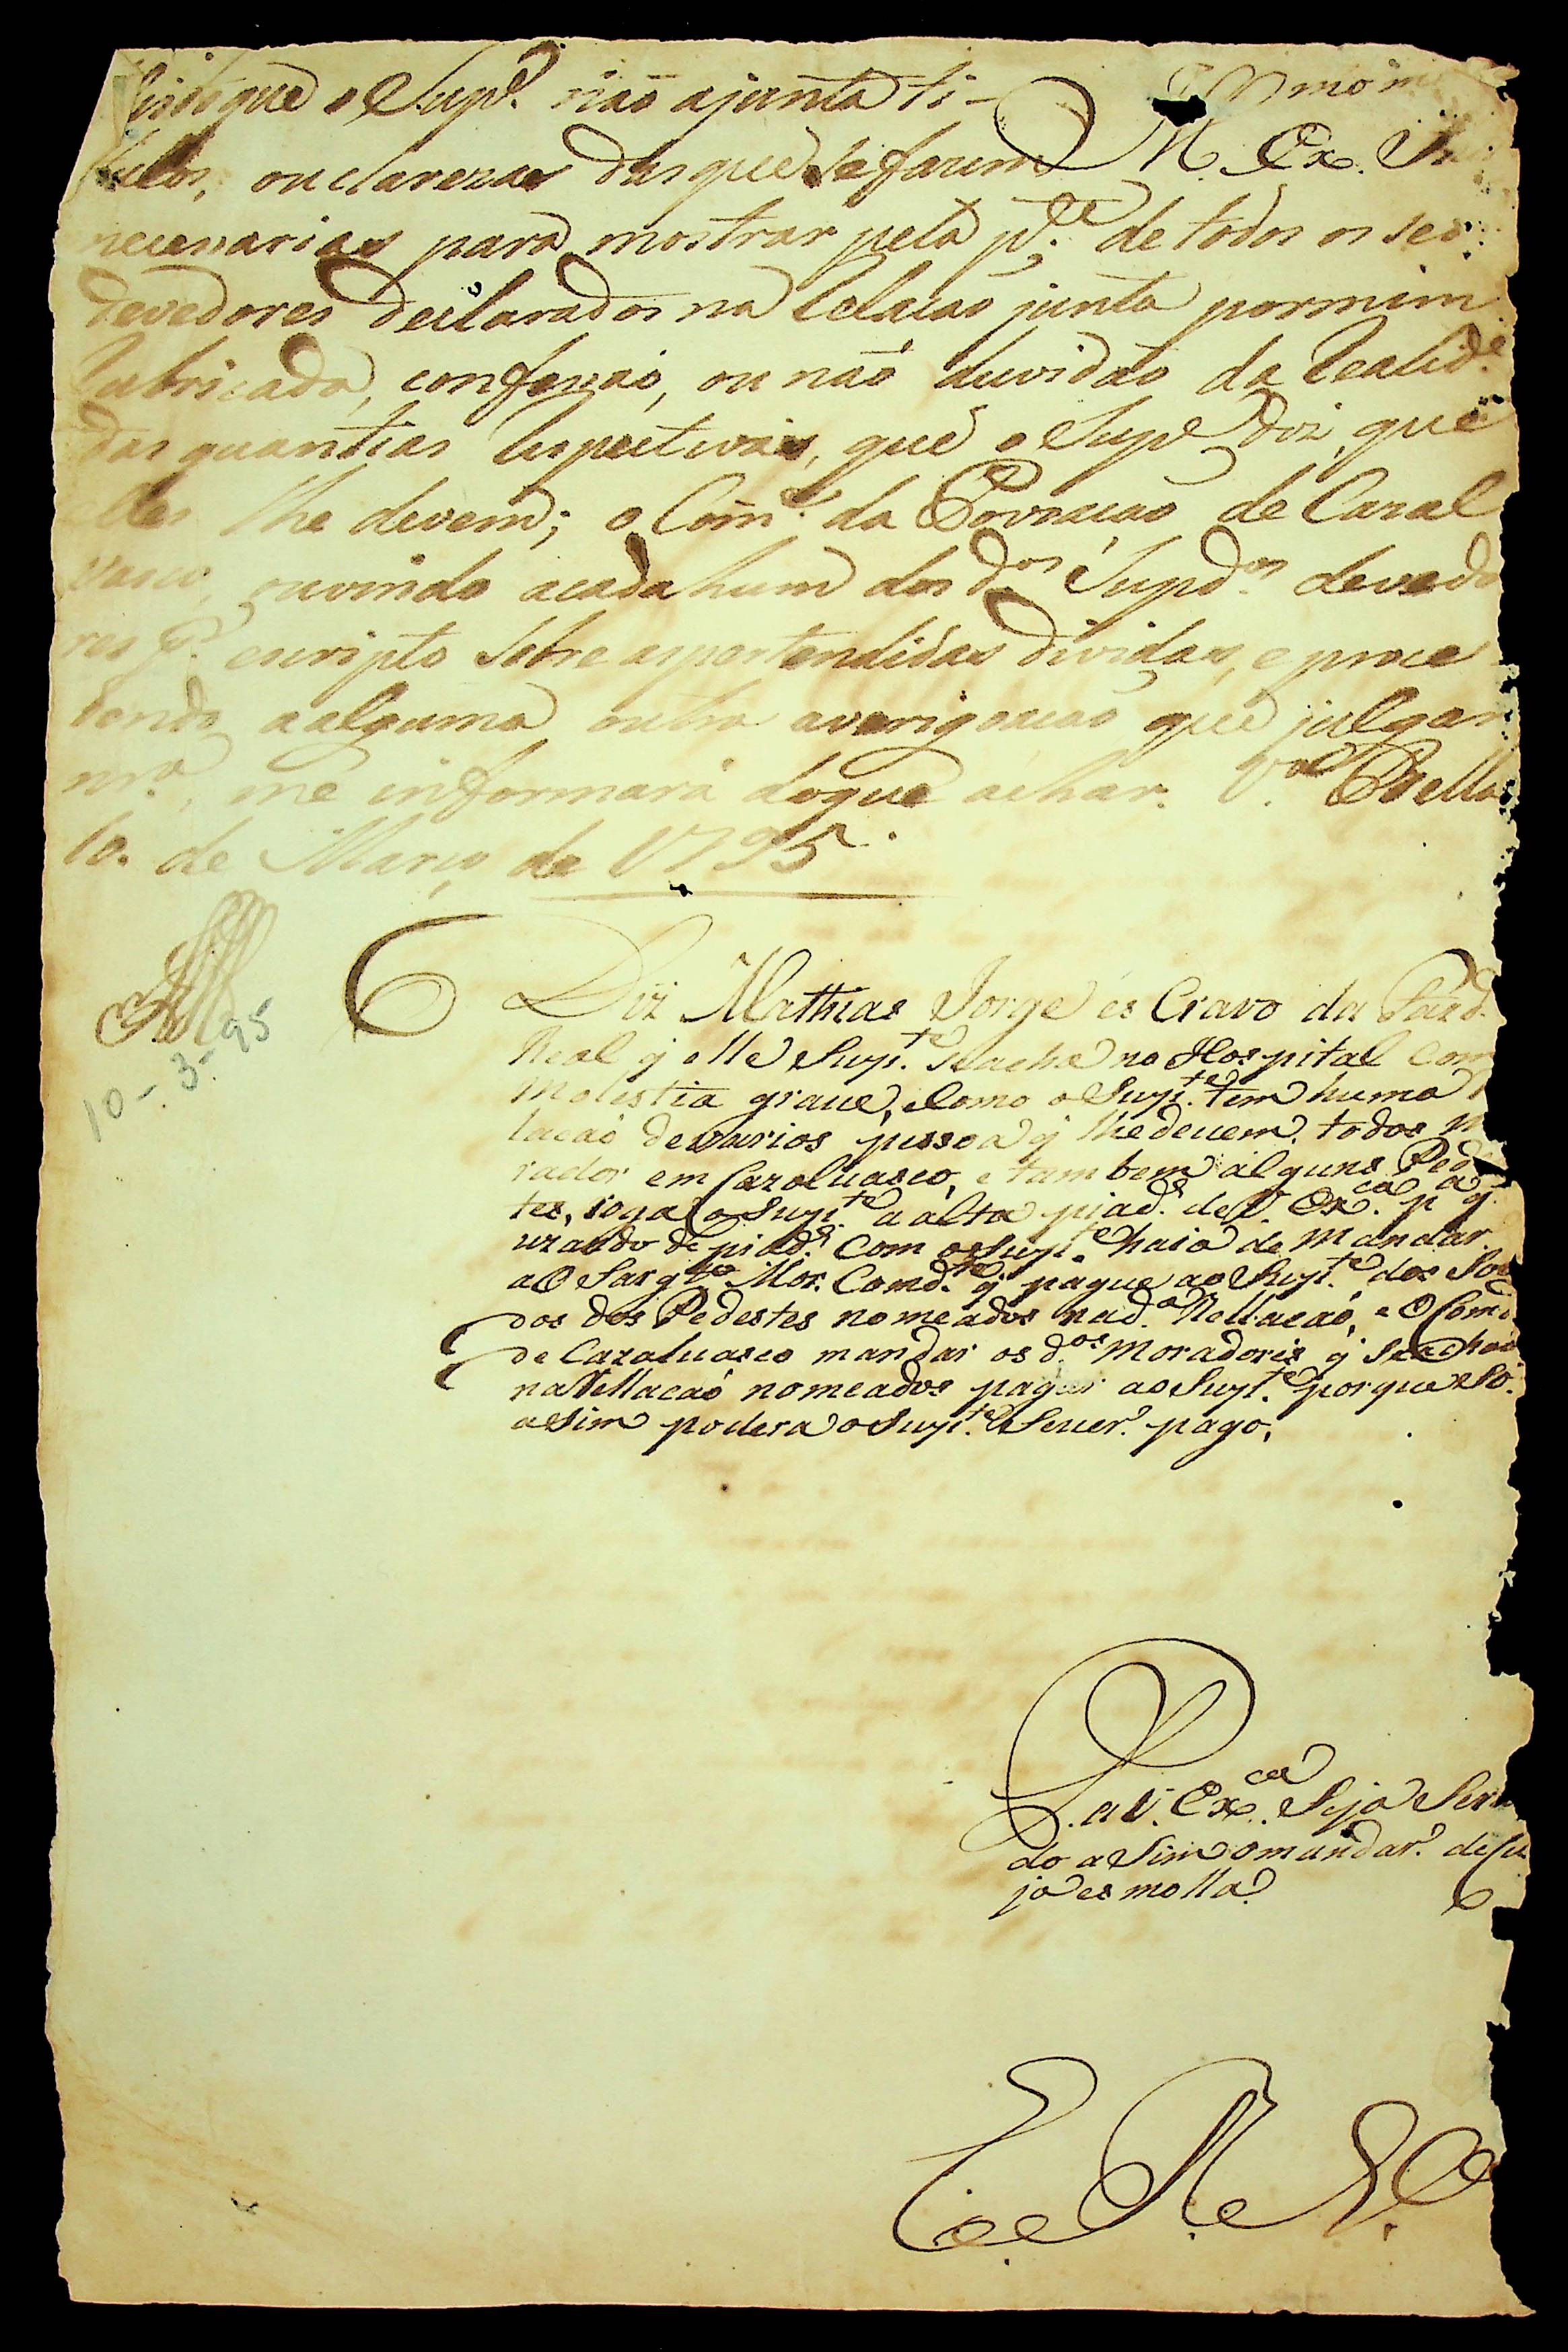 Visto que o Supe. não ajunta ti-
tulos, ou clarezas das que se fazem
necesarias para mostrar pela pte. de todos os seos
devedores declarados na Relacão junta por mim
Rubricada, confesão, ou não duvidão da Realide.
das quantias Respectivas, que o Supe. diz, que
elles lhe devem; o Come. da Povoação de Cazal
vasco, ouvindo a cada hum dos dos. Supdos. devedo
res pr. escripto sobre as pertendidas dividas, e proce
dendo a alguma outra averigoacão que julgar
nra., me informará do que achar. Va. Bella
10. de Março de 1795.
Illmo.
e Ex. Snr.
10-3-95
Diz Mathias Jorge es Cravo da Fazd.
Real q̃ elle Supte. se acha no Hospital Com
Molestia graue, e Como o Supte. tem huma Re
lacaó de varios pessoa q̃ lhe deuem. todos Mo
rador em Cazaluasco, e tambem alguns Pedes
tes, roga o Supte. a alta piade. de V. Exca. pa. q̃
uzando de piade. Com o Supte. haia de Mandar
ao Sargto. Mor. Comdte. q̃ pague ao Supte. dos Sol
dos dos Pedestes nomeados na da. Rellacaó, e O Comd
de Cazaluasco mandar os dos. Moradoris q̃ Se achaó
na Rellacaó nomeados pagar ao Supte. porque Só.
aSim podera o Supte. Se uer. pago.
P. a V. Exca. Seja Servi
do aSim o mandar. de Cu
ja es molla
E. R. Mce.